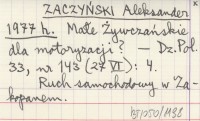 ŻACZYŃSKI Aleksander
1977 h. Małe Żywczańskie
dla motoryzacji? — Dz. Pol.
33, nr 143 (27 VI): 4.
Ruch samochodowy w Za-
kopanem.